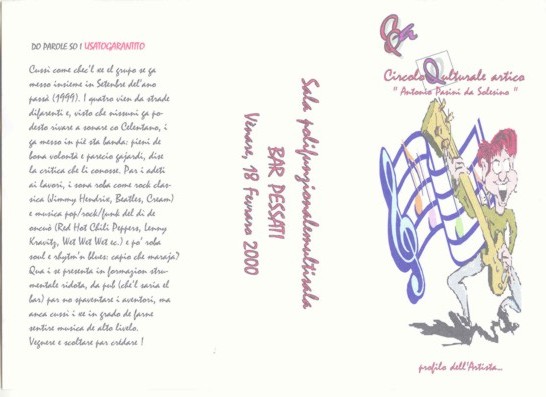 DO PAROLE SO I USATOGARANTITO
Cussì come chec'l xe el grupo se ga
messo insieme in Setenbre del'ano
passà (1999). I quatro vien da strade
difarenti e, visto che nissuni ga po-
desto rivare a sonare co Celentano, i
ga messo in piè sta banda: pieni de
bona volontà e parecio gajardi, dise
la critica che li conosse. Par i adeti
ai lavori, i sona roba come rock clas-
sica (Jimmy Hendrix, Beatles, Cream)
e musica pop/rock/funk del dì de
oncuò (Red Hot Chili Peppers, Lenny
Kravitz, Wet Wet Wet ec.) e po' roba
soul e rhytm'n blues: capio che maraja?
Qua i se presenta in formazion stru-
mentale ridota, da pub (ché'l saria el
bar) par no spaventare i aventori, ma
anca cussì i xe in grado de farne
sentire musica de alto livelo.
Vegnere e scoltare par crédare !
Sala polifunzionalemultisala
BAR PESSATI
Vénare, 18 Fevraro 2000
Circolo Qulturale artico
" Antonio Pasini da Solesino "
profilo dell'Artista...